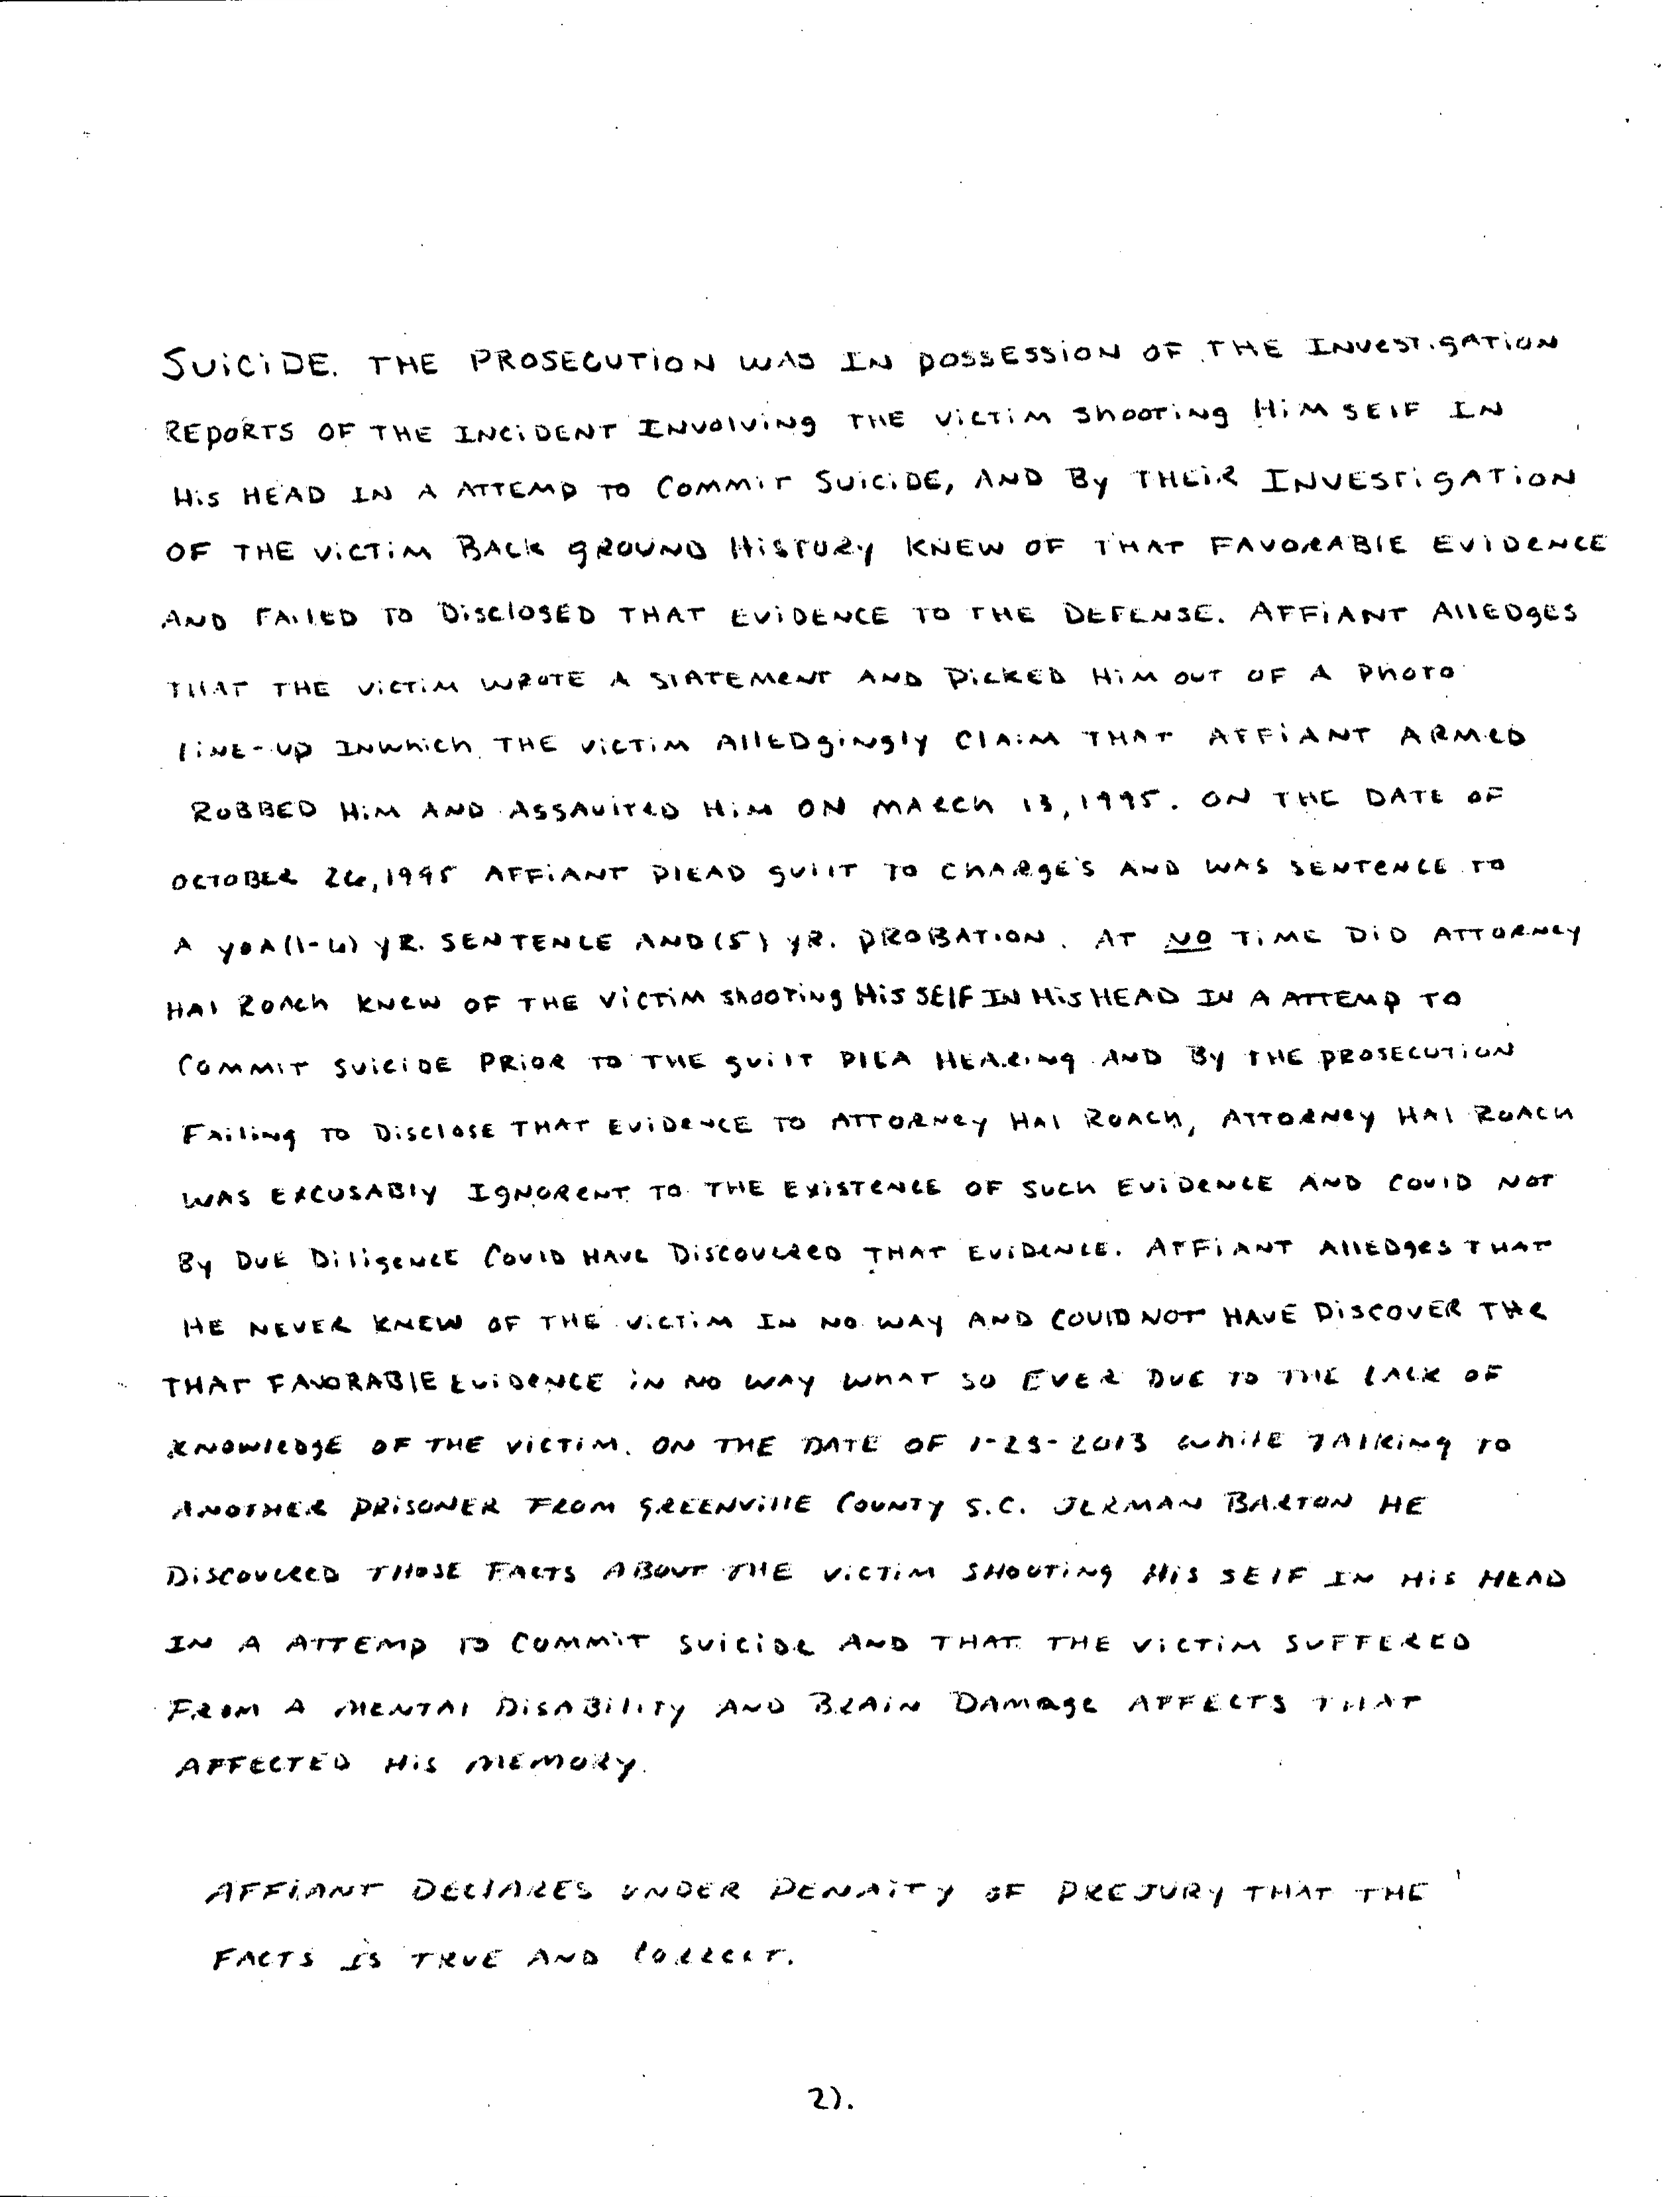 SUICIDE. THE PROSECUTION WAS IN POSSESSION OF THE INVESTIGATION
REPORTS OF THE INCIDENT INVOLVING THE VICTIM SHOOTING HIMSELF IN
HIS HEAD IN A ATTEMP TO COMMIT SUICIDE, AND BY THEIR INVESTIGATION
OF THE VICTIM BACK GROUND HISTORY KNEW OF THAT FAVORABLE EVIDENCE
AND FAILED TO DISCLOSED THAT EVIDENCE TO THE DEFENSE. AFFIANT ALLEDGES
THAT THE VICTIM WROTE A STATEMENT AND PICKED HIM OUT OF A PHOTO
LINE-UP INWHICH THE VICTIM ALLEDGINGLY CLAIM THAT AFFIANT ARMED
ROBBED HIM AND ASSAULTED HIM ON MARCH 13, 1995. ON THE DATE OF
OCTOBER 26, 1995 AFFIANT PLEAD GUILT TO CHARGE'S AND WAS SENTENCE TO
A YOA (1-6) YR. SENTENCE AND (5) YR. PROBATION. AT NO TIME DID ATTORNEY
HAL ROACH KNEW OF THE VICTIM SHOOTING HIS SELF IN HIS HEAD IN A ATTEMP TO
COMMIT SUICIDE PRIOR TO THE GUILT PLEA HEARING AND BY THE PROSECUTION
FAILING TO DISCLOSE THAT EVIDENCE TO ATTORNEY HAL ROACH, ATTORNEY HAL ROACH
WAS EXCUSABLY IGNORENT TO THE EXISTENCE OF SUCH EVIDENCE AND COULD NOT
BY DUE DILIGENCE COULD HAVE DISCOVERED THAT EVIDENCE. AFFIANT ALLEDGES THAT
HE NEVER KNEW OF THE VICTIM IN NO WAY AND COULD NOT HAVE DISCOVER THE
THAT FAVORABLE EVIDENCE IN NO WAY WHAT SO EVER DUE TO THE LACK OF
KNOWLEDGE OF THE VICTIM. ON THE DATE OF 1-23-2013 WHILE TALKING TO
ANOTHER PRISONER FROM GREENVILLE COUNTY S.C. JERMAN BARTON HE
DISCOVERED THOSE FACTS ABOUT THE VICTIM SHOOTING HIS SELF IN HIS HEAD
IN A ATTEMP TO COMMIT SUICIDE AND THAT THE VICTIM SUFFERED
FROM A MENTAL DISABILITY AND BRAIN DAMAGE AFFECTS THAT
AFFECTED HIS MEMORY.
AFFIANT DECLARES UNDER PENALTY OF PREJURY THAT THE
FACTS IS TRUE AND CORRECT.
2).